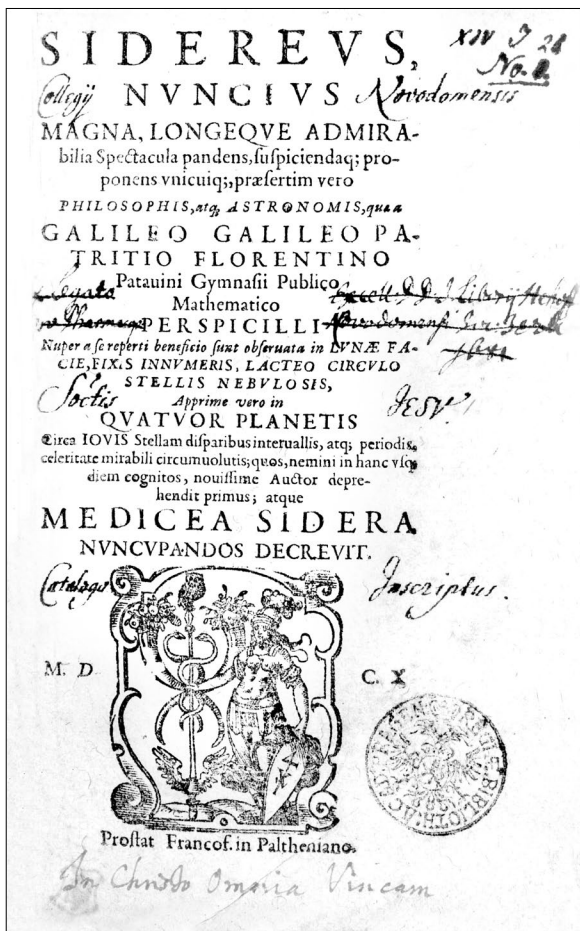 SIDEREVS,
XIV J 21
No. 1.
Collegij NVNCIVS Novodomensis
MAGNA, LONGEQVE ADMIRA-
bilia Spectacula pandens, suspiciendaq; pro-
ponens vnicuiq;, præsertim vero
PHILOSOPHIS, atq; ASTRONOMIS, quæ a
GALILEO GALILEO PA-
TRITIO FLORENTINO
Patauini Gymnasii Publico
Mathematico
PERSPICILLI
Nuper a se reperti beneficio sunt obseruata in LVNÆ FA-
CIE, FIXIS INNVMERIS, LACTEO CIRCVLO
STELLIS NEBVLOSIS,
Soctis Apprime vero in JESV.
QVATVOR PLANETIS
Circa IOVIS Stellam disparibus interuallis, atq; periodis,
celeritate mirabili circumuolutis; quos, nemini in hanc vsq;
diem cognitos, nouissime Auctor depre-
hendit primus; atque
MEDICEA SIDERA
NVNCVPANDOS DECREVIT.
Catalogo Inscriptus.
M. D C. X
Prostat Francof. in Paltheniano.
In Christo Omnia Vincam